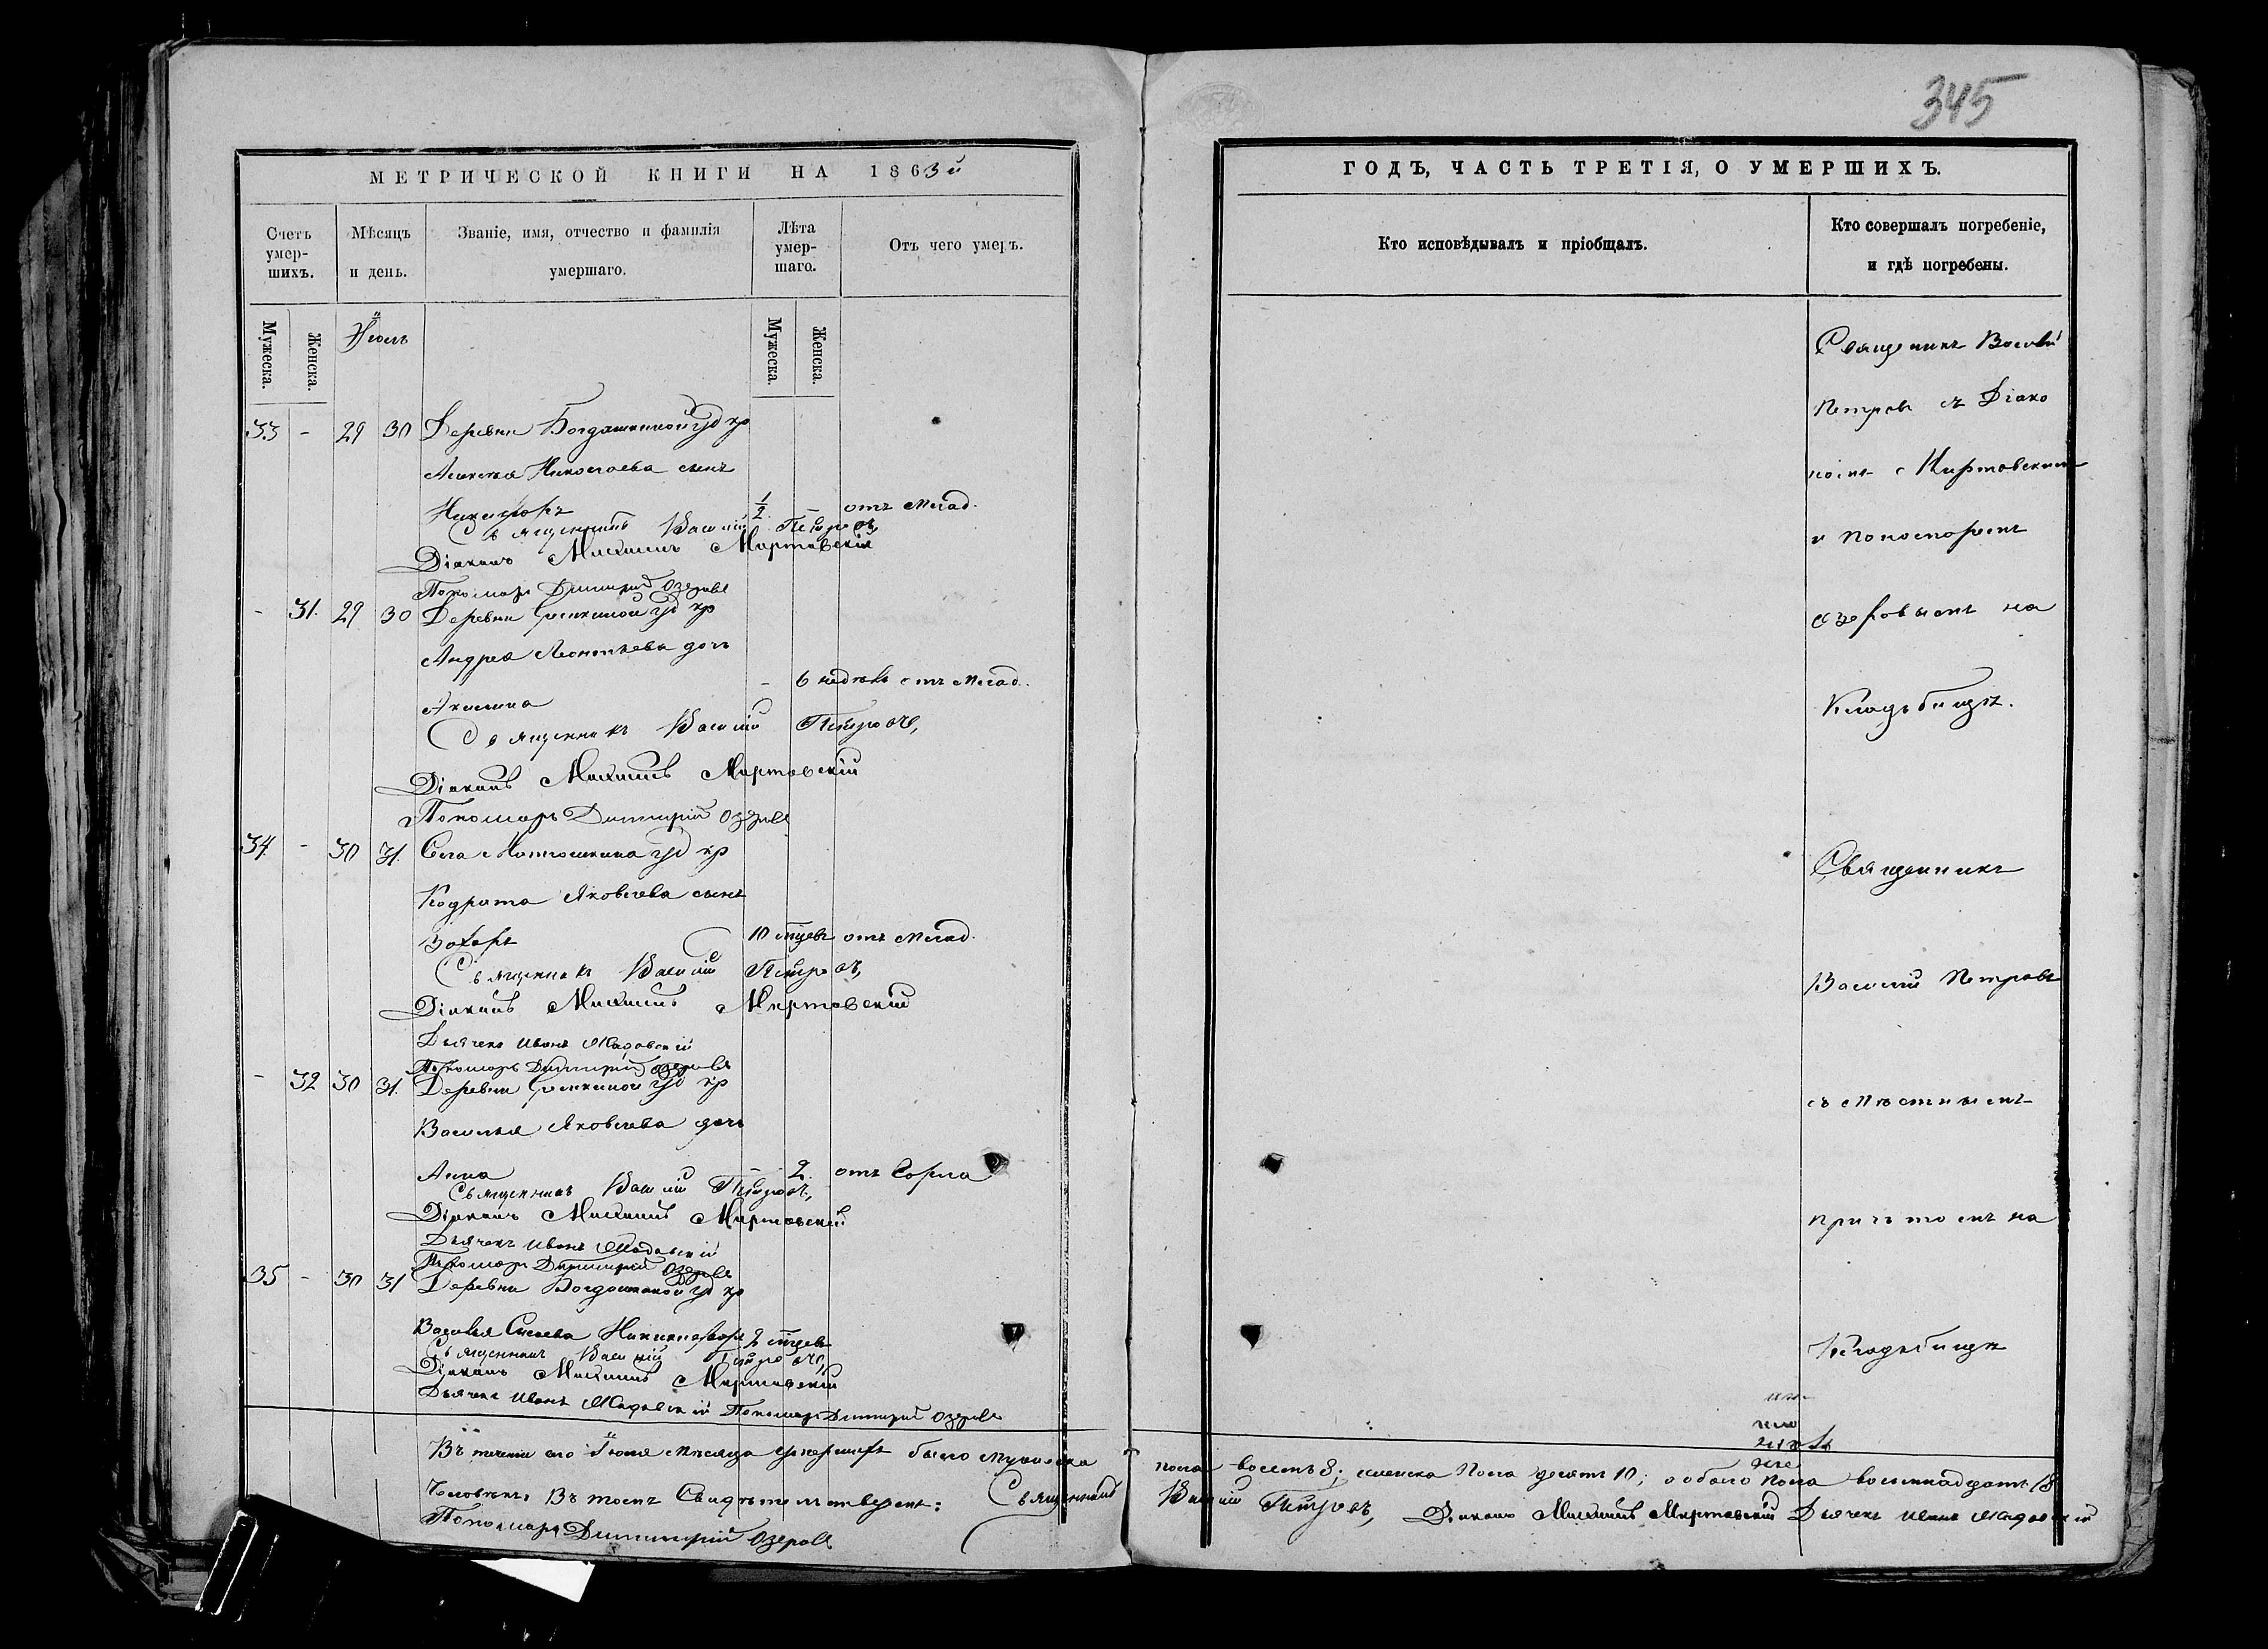 345
МЕТРИЧЕСКОЙ КНИГИ НА 1863й
Счетъ умер-шихъ.
Мѣсяцъ и день.
Званіе, имя, отчество и фамилія умершаго.
Лѣта умер-шаго.
Отъ чего умеръ.
Мужеска.
Женска.
Іюль
Мужеска.
Женска.
33 - 29 30 Деревни уд кр
Николаева сынъ
Никифоръ 1/2 - отъ млад.
Священникъ Василій Петровъ,
Діаконъ Михаилъ Миртовскій
Пономарь Димитрій Озеровъ
- 31. 29 30 Деревни уд кр
Андрея Леонтьева дочь
Акилина - 6 недѣль отъ млад.
Священникъ Василій Петровъ,
Діаконъ Михаилъ Миртовскій
Пономарь Димитрій Озеровъ
34. - 30 31. Села уд кр
Кодрата Яковлева сынъ
Захаръ 10 мцевъ отъ млад.
Священникъ Василій Петровъ,
Діаконъ Михаилъ Миртовскій
Дьячекъ Иванъ
Пономарь Димитрій Озеровъ
- 32 30 31. Деревни уд кр
Василья Яковлева дочь
Анна - 2. отъ Горла
Священникъ Василій Петровъ,
Діаконъ Михаилъ Миртовскій
Дьячекъ Иванъ
Пономарь Димитрій Озеровъ
35 - 30 31 Деревни уд кр
Василья 2 мцевъ
Священникъ Василій Петровъ,
Діаконъ Михаилъ Миртовскій
Дьячекъ Иванъ Пономарь Димитрій Озеровъ
ГОДЪ, ЧАСТЬ ТРЕТІЯ, О УМЕРШИХЪ.
Кто исповѣдывалъ и пріобщалъ.
Кто совершалъ погребеніе,
и гдѣ погребены.
Священникъ Василій
Петровъ съ Діако
номъ Миртовскимъ
и Пономоремъ
Озеровымъ на
Кладьбищѣ.
Священникъ
Василій Петровъ
съ мѣстнымъ
причтомъ на
Кладьбищѣ
Въ теченіи сего Іюля мѣсяца умершихъ было мужеска пола восемь 8; женска Пола десять 10; обоего пола восемнадцать 18
Человѣкъ. Въ томъ Свидѣтельствуемъ: Священникъ Василій Петровъ, Діаконъ Михаилъ Миртовскій Дьячекъ Иванъ
Пономарь Димитрій Озеровъ